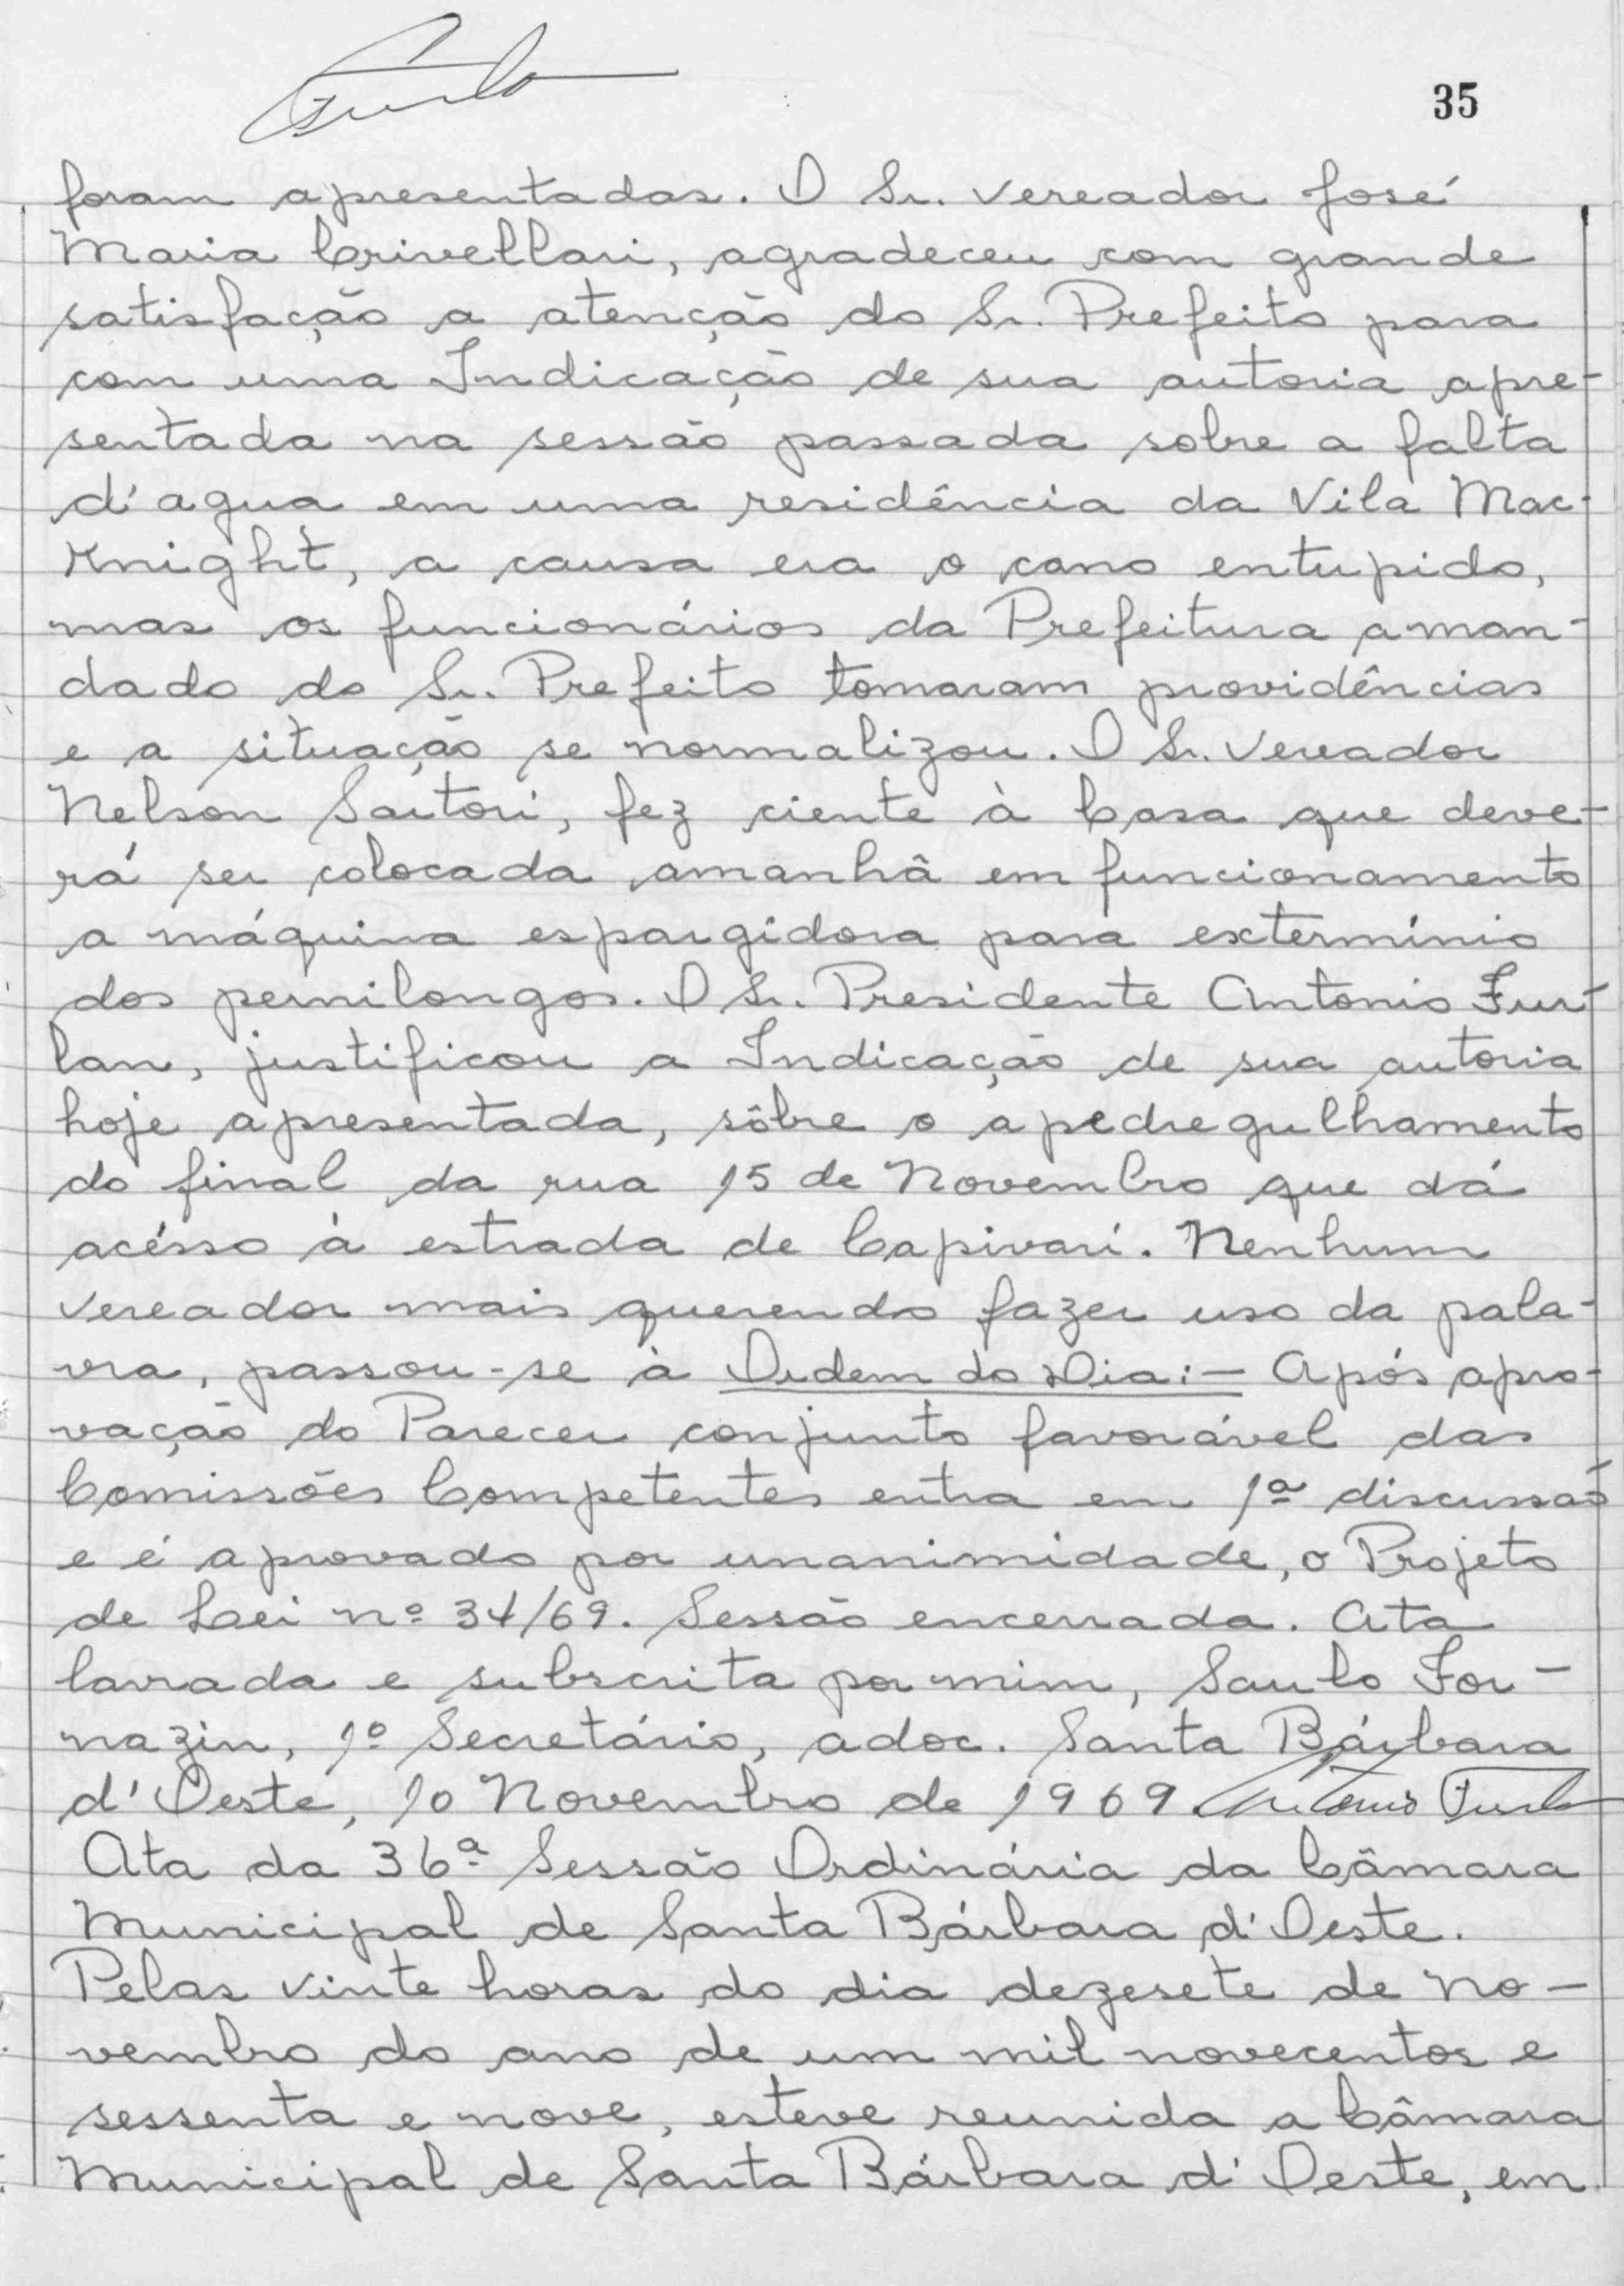 35
foram apresentadas. O Sr. vereador José
Maria Crivellari, agradeceu com grande
satisfação a atenção do Sr. Prefeito para
com uma Indicação de sua autoria apre-
sentada na sessão passada sobre a falta
d'agua em uma residência da Vila Mac-
Knight, a causa era o cano entupido,
mas os funcionários da Prefeitura a man-
dado do Sr. Prefeito tomaram providências
e a situação se normalizou. O Sr. Vereador
Nelson Sartori, fez ciente à Casa que deve-
rá ser colocada amanhã em funcionamento
a máquina espargidora para extermínio
dos pernilongos. O Sr. Presidente Antonio Fur-
lan, justificou a Indicação de sua autoria
hoje apresentada, sôbre o apedregulhamento
do final da rua 15 de Novembro que dá
acésso à estrada de Capivari. Nenhum
vereador mais querendo fazer uso da pala-
vra, passou-se à Ordem do Dia:- Após apro-
vação do Parecer conjunto favorável das
Comissões Competentes entra em 1ª discussão
e é aprovado por unanimidade, o Projeto
de Lei nº 34/69. Sessão encerrada. Ata
lavrada e subscrita por mim, Saulo For-
nazin, 1º Secretário, adoc. Santa Bárbara
d'Oeste, 10 Novembro de 1969 Antonio Furlan
Ata da 36ª Sessão Ordinária da Câmara
Municipal de Santa Bárbara d'Oeste.
Pelas vinte horas do dia dezesete de No-
vembro do ano de um mil novecentos e
sessenta e nove, esteve reunida a Câmara
Municipal de Santa Bárbara d'Oeste, em